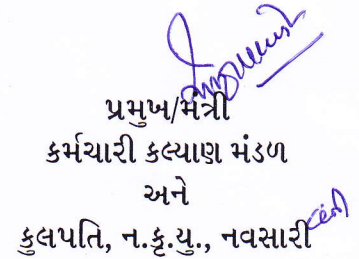 પ્રમુખ/મંત્રી
કર્મચારી કલ્યાણ મંડળ
અને
કુલપતિ, ન.કૃ.યુ., નવસારી